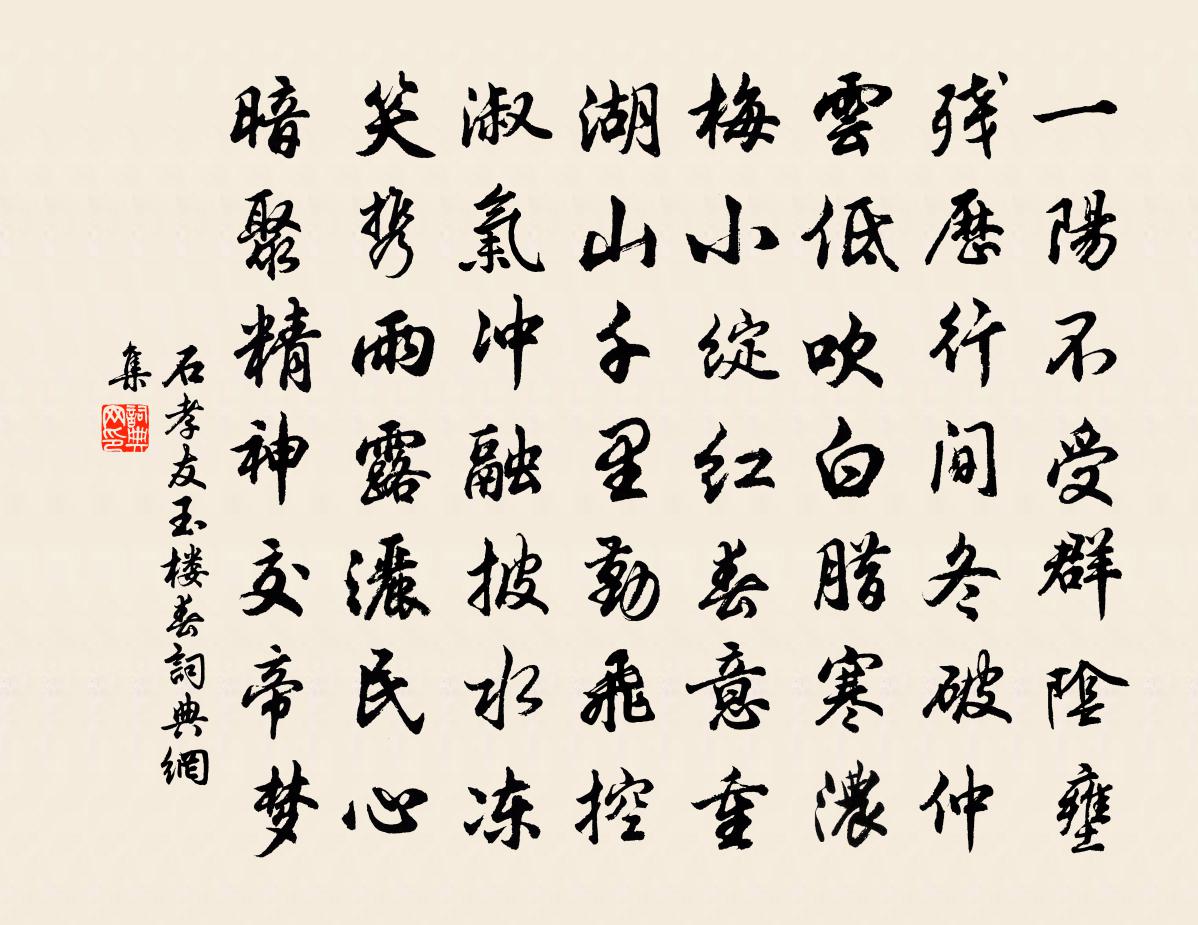 一陽不受群陰壅
残歷行間冬破仲
雲低吹白腊寒濃
梅小綻紅春意重
湖山千里勤飛控
淑氣冲融披水冻
笑携雨露灑民心
暗聚精神交帝梦
石孝友玉楼春詞典網
集
詞典网印